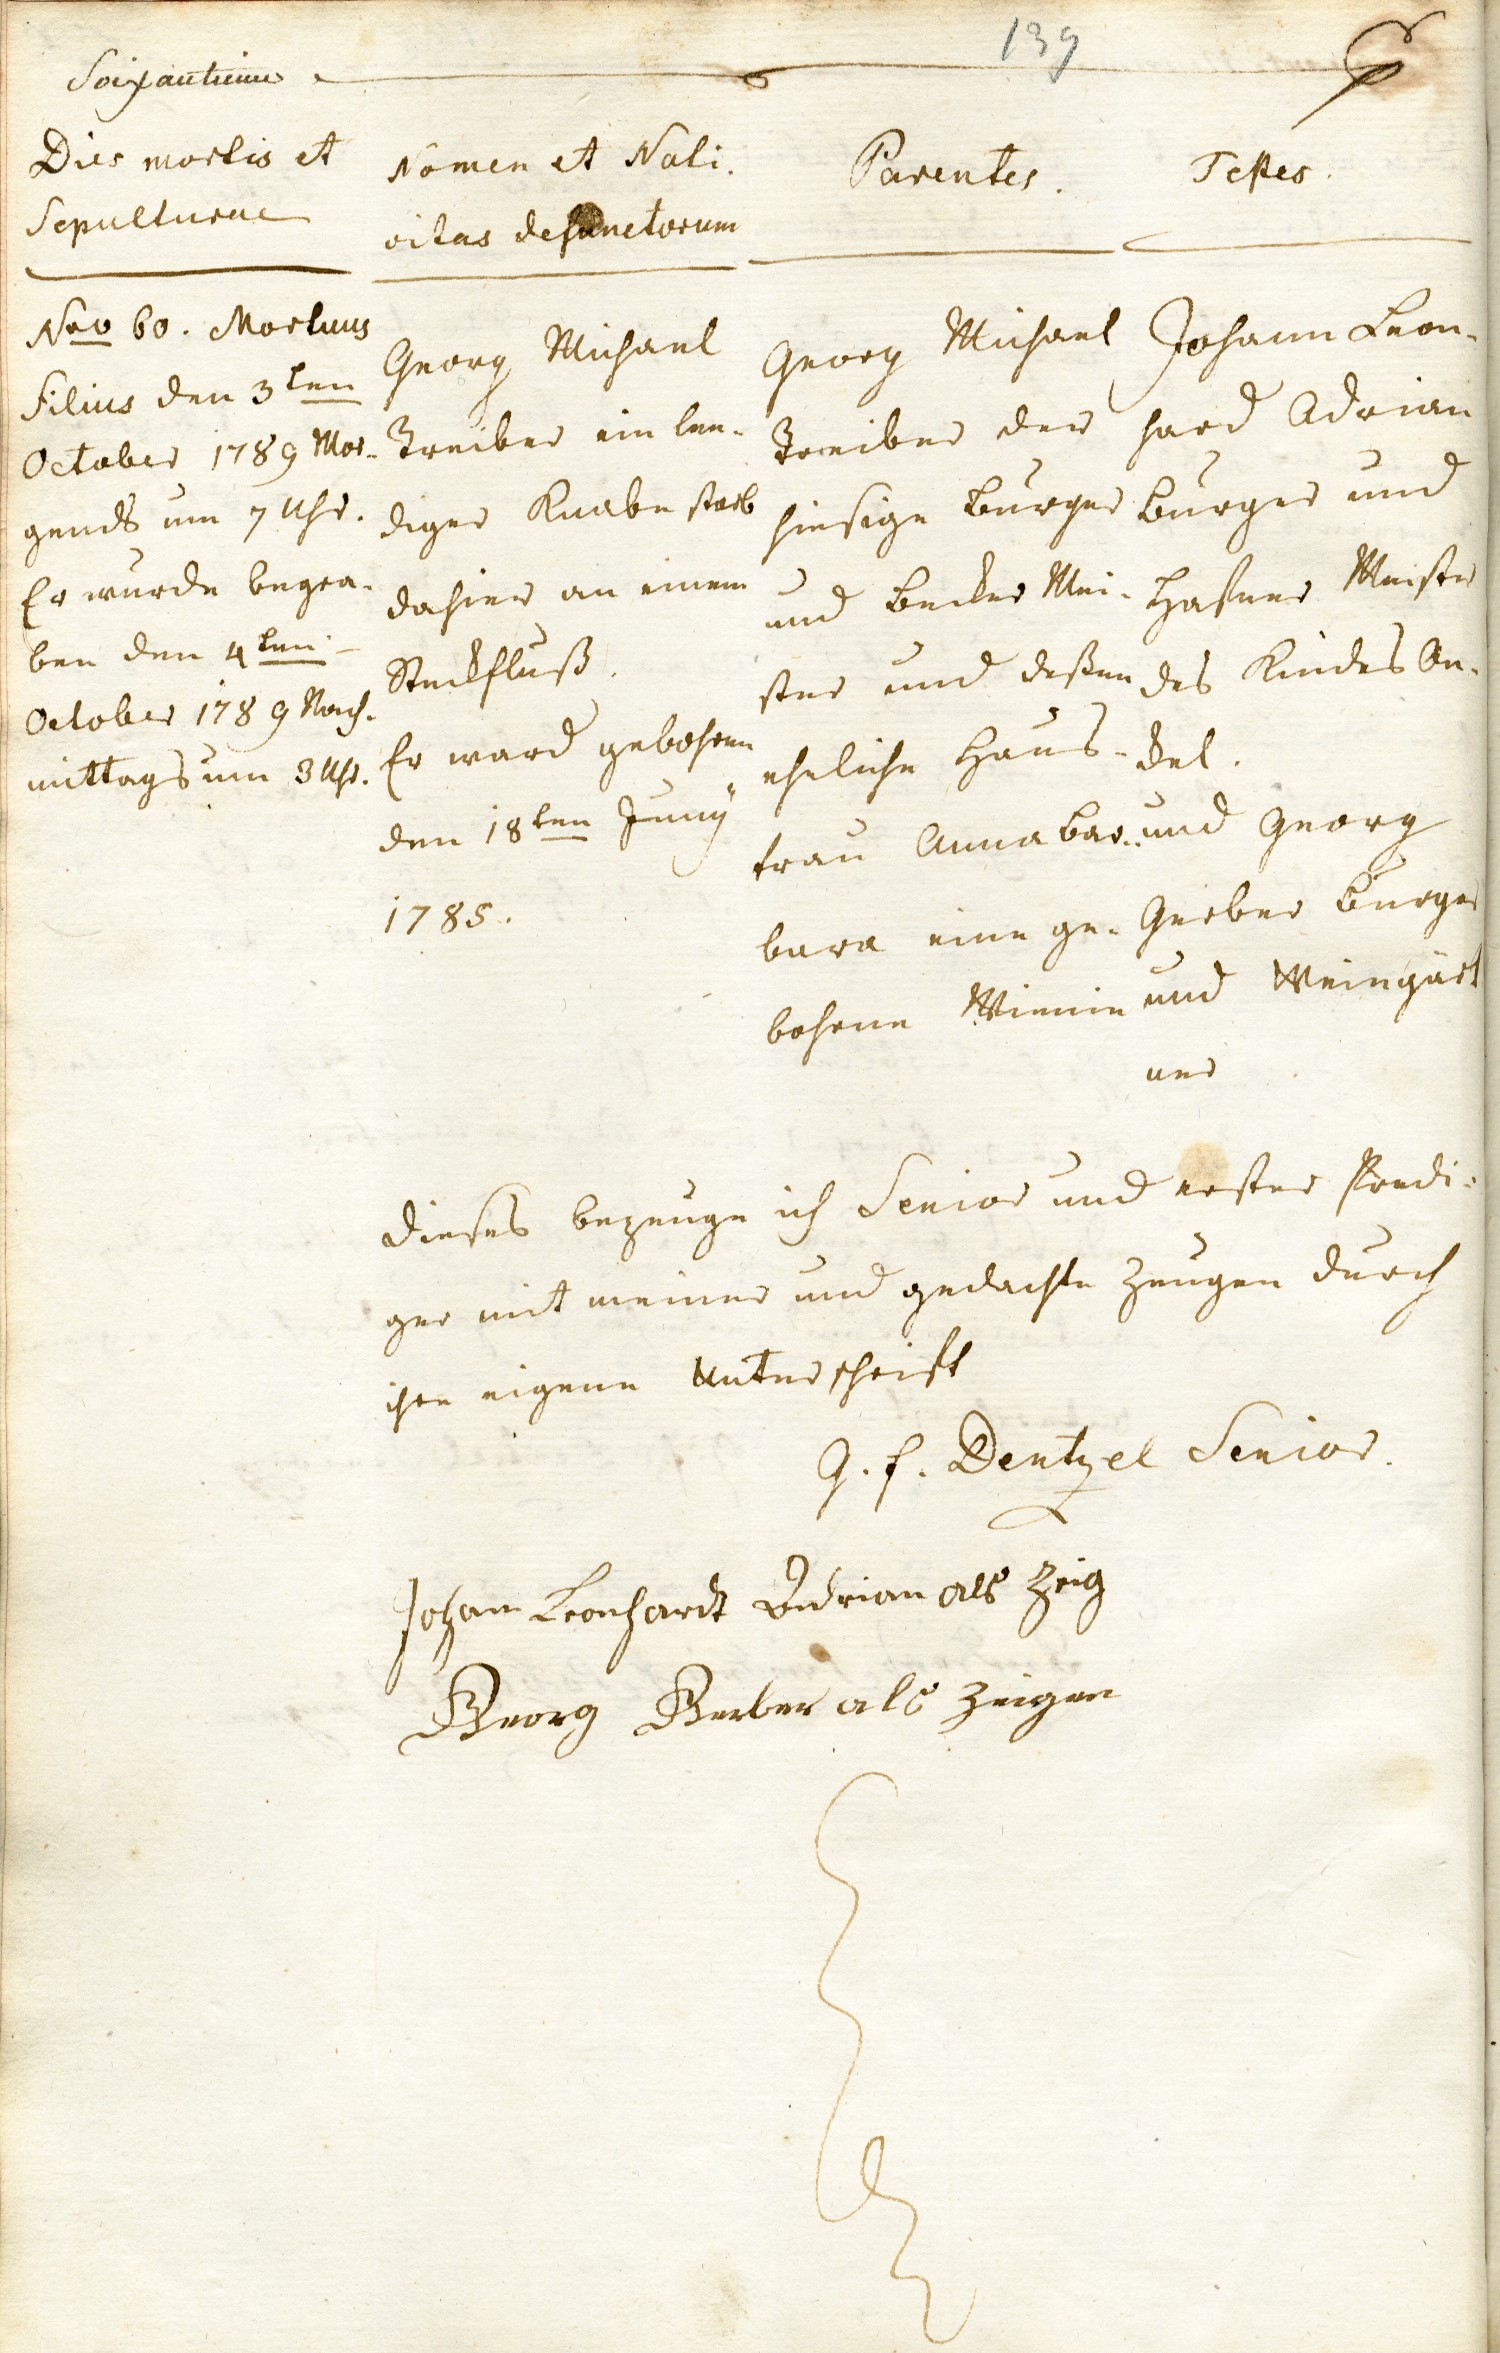 139
Soixantieme
Dies mortis et
Sepulturae
Nro 60. Mortuus
Filius den 3ten
October 1789 Mor-
gends um 7 Uhr.
Er wurde begra-
ben den 4ten
October 1789 Nach-
mittags um 3 Uhr.
Nomen et Nati-
vitas defunctorum
Georg Michael
Treiber ein lee-
diger Knabe starb
dahier an einem
Steckfluß.
Er ward gebohren
den 18ten Juny
1785.
Parentes.
Georg Michael
Treiber der
hiesige Burger
und Becker Mei-
ster und deßen
eheliche Haus-
frau Anna Bar-
bara eine ge-
bohrne
Testes.
Johann Leon-
hard Adrian
Burger und
Hafner Meister
des Kindes On-
kel.
und Georg
Gerber Burger
und Weingärt
ner
Dieses bezeuge ich Senior und erster Predi-
ger mit meiner und gedachte Zeugen durch
ihre eigene Unterschrift
G. F. Dentzel Senior.
Johan Leonhardt Adrian als Zeig
Georg Gerber als Zeigen